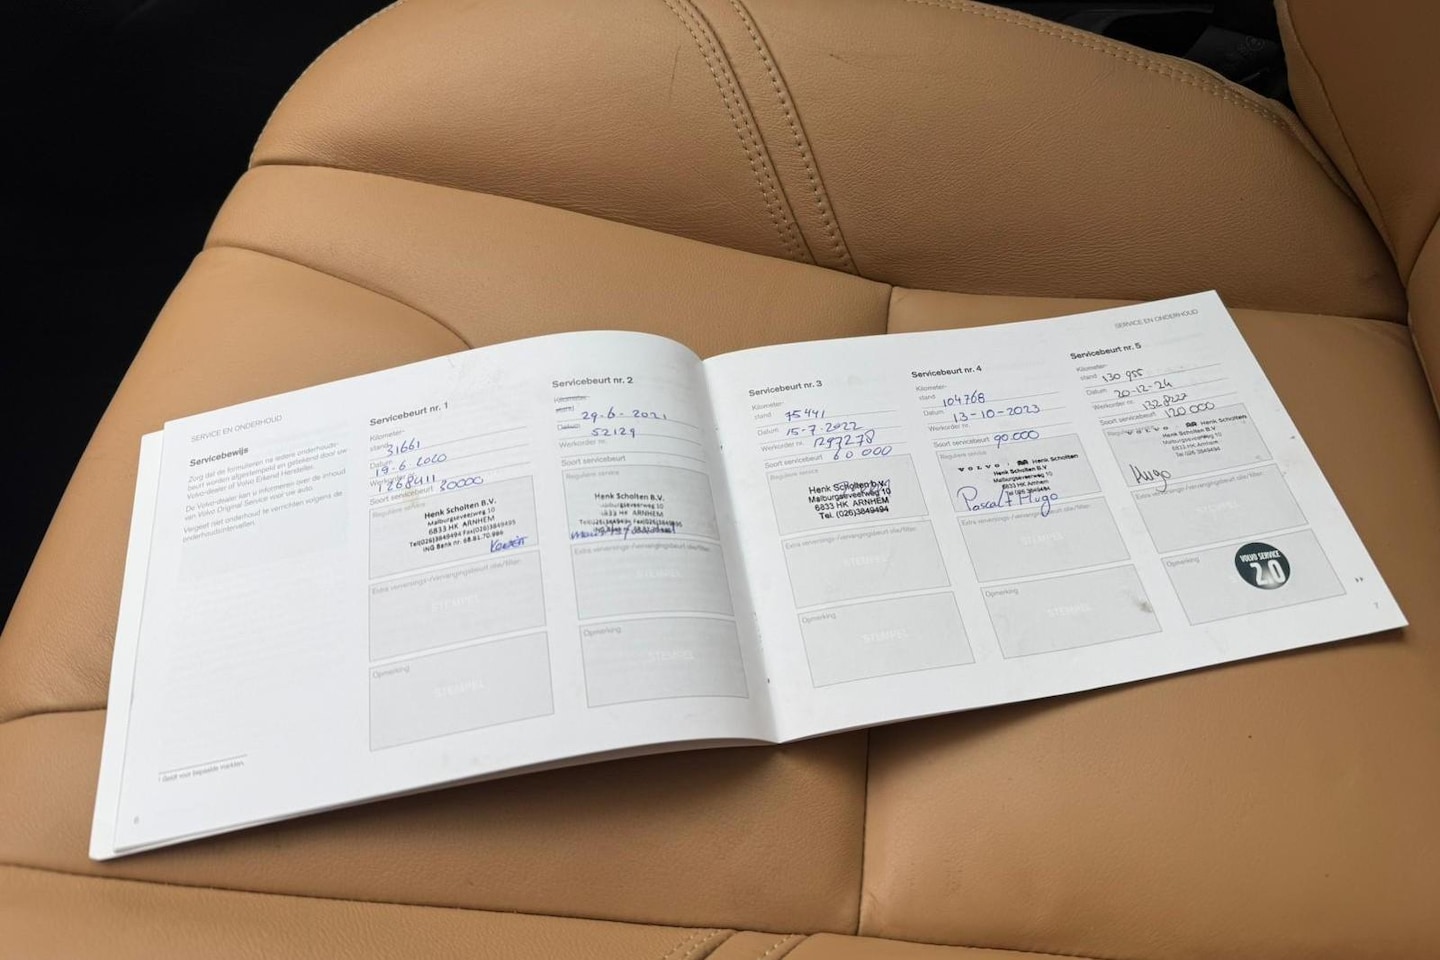 SERVICE EN ONDERHOUD
Servicebewijs
Zorg dat de formulieren na iedere onderhouds-
beurt worden afgestempeld en getekend door uw
Volvo-dealer of Volvo Erkend Hersteller.
De Volvo-dealer kan u informeren over de inhoud
van Volvo Original Service voor uw auto.
Vergeet niet onderhoud te verrichten volgens de
onderhoudsintervallen.
1 Geldt voor bepaalde markten.
6
Servicebeurt nr. 1
Kilometer-
stand 31661
Datum 19-6-2020
Werkorder nr. 1268411
Soort servicebeurt 30000
Reguliere service
Henk Scholten B.V.
Malburgseveerweg 10
6833 HK ARNHEM
Tel(026)3849494 Fax(026)3849495
ING Bank nr. 68.81.70.966
Extra verversings-/vervangingsbeurt olie/filter
STEMPEL
Opmerking
STEMPEL
Servicebeurt nr. 2
Kilometer-
stand
29-6-2021
Datum
52129
Werkorder nr.
Soort servicebeurt
Reguliere service
Henk Scholten B.V.
Malburgseveerweg 10
6833 HK ARNHEM
Extra verversings-/vervangingsbeurt olie/filter
STEMPEL
Opmerking
STEMPEL
Servicebeurt nr. 3
Kilometer-
stand 75441
Datum 15-7-2022
Werkorder nr. 1297278
Soort servicebeurt 60000
Reguliere service
Henk Scholten b.v.
Malburgseveerweg 10
6833 HK ARNHEM
Tel. (026)3849494
Extra verversings-/vervangingsbeurt olie/filter
STEMPEL
Opmerking
STEMPEL
Servicebeurt nr. 4
Kilometer-
stand 104768
Datum 13-10-2023
Werkorder nr.
Soort servicebeurt 90.000
Reguliere service
VOLVO Henk Scholten
Henk Scholten B.V.
Malburgseveerweg 10
6833 HK Arnhem
Tel 026 3849494
Pascal + Hugo
Extra verversings-/vervangingsbeurt olie/filter
STEMPEL
Opmerking
STEMPEL
SERVICE EN ONDERHOUD
Servicebeurt nr. 5
Kilometer-
stand 130 955
Datum 20-12-24
Werkorder nr. 1328227
Soort servicebeurt 120 000
Reguliere service
VOLVO Henk Scholten
Henk Scholten B.V.
Malburgseveerweg 10
6833 HK Arnhem
Tel 026 3849494
Hugo
Extra verversings-/vervangingsbeurt olie/filter
Opmerking
VOLVO SERVICE
2.0
7